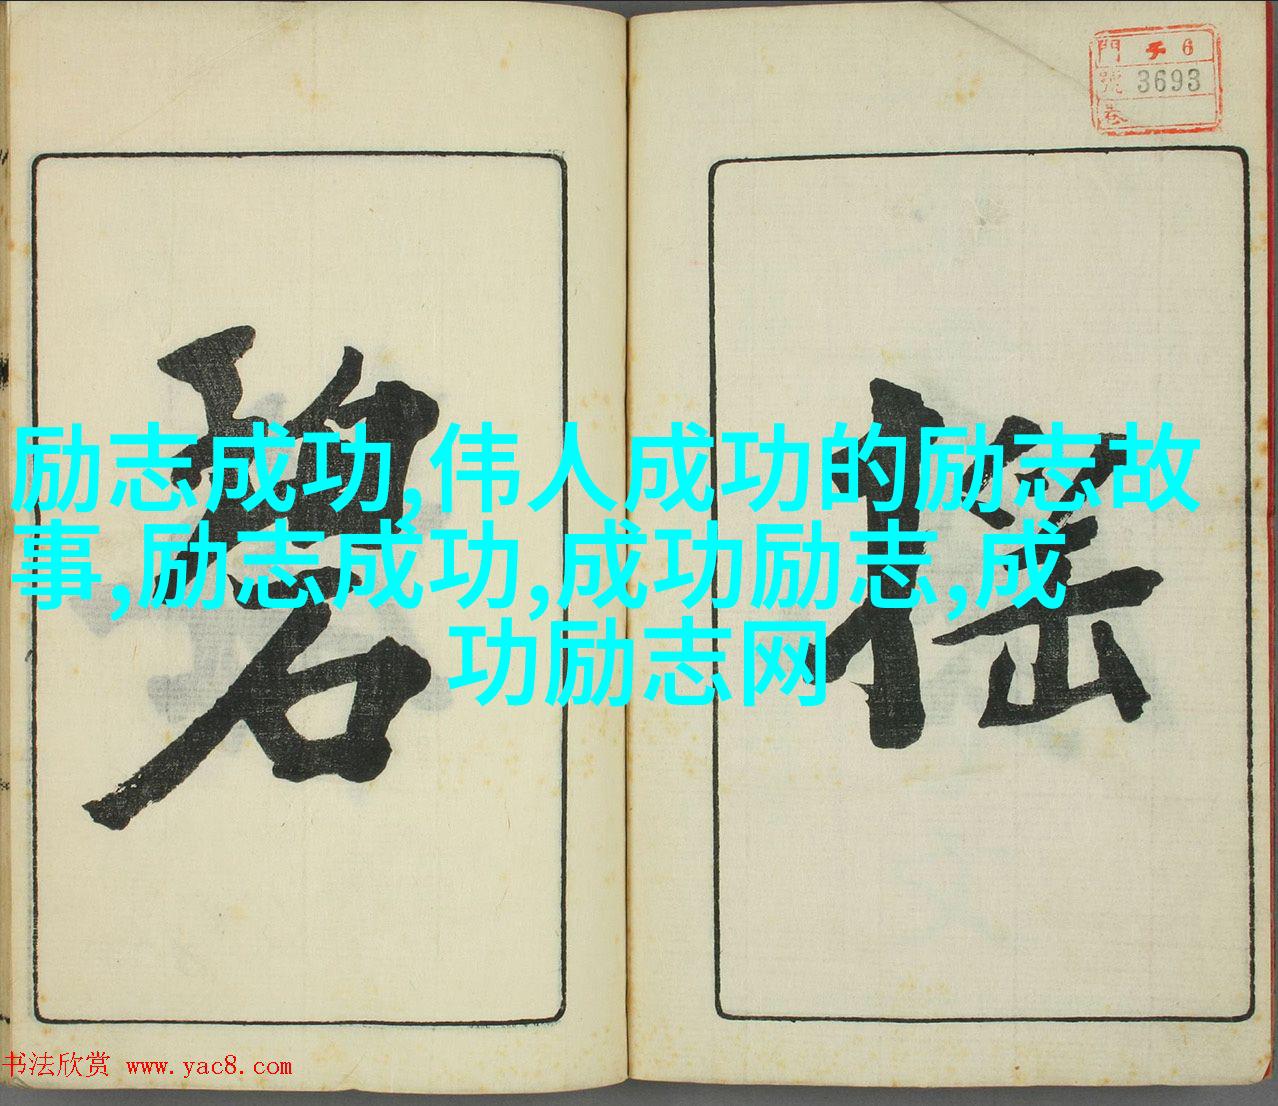 門 チ 6
號 3693
卷
碧 摇
励志成功,伟人成功的励志故
事,励志成功,成功励志,成
功励志网
书法欣赏 www.yac8.com